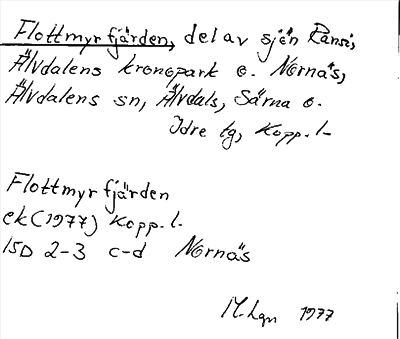 Flottmyrfjärden, del av sjön Ransi,
Älvdalens kronopark o. Nornäs,
Älvdalens sn, Älvdals, Särna o.
Idre tg, Kopp. l.
Flottmyrfjärden
ek (1977) Kopp. l.
15D 2-3 c-d Nornäs
M. Lgn 1977